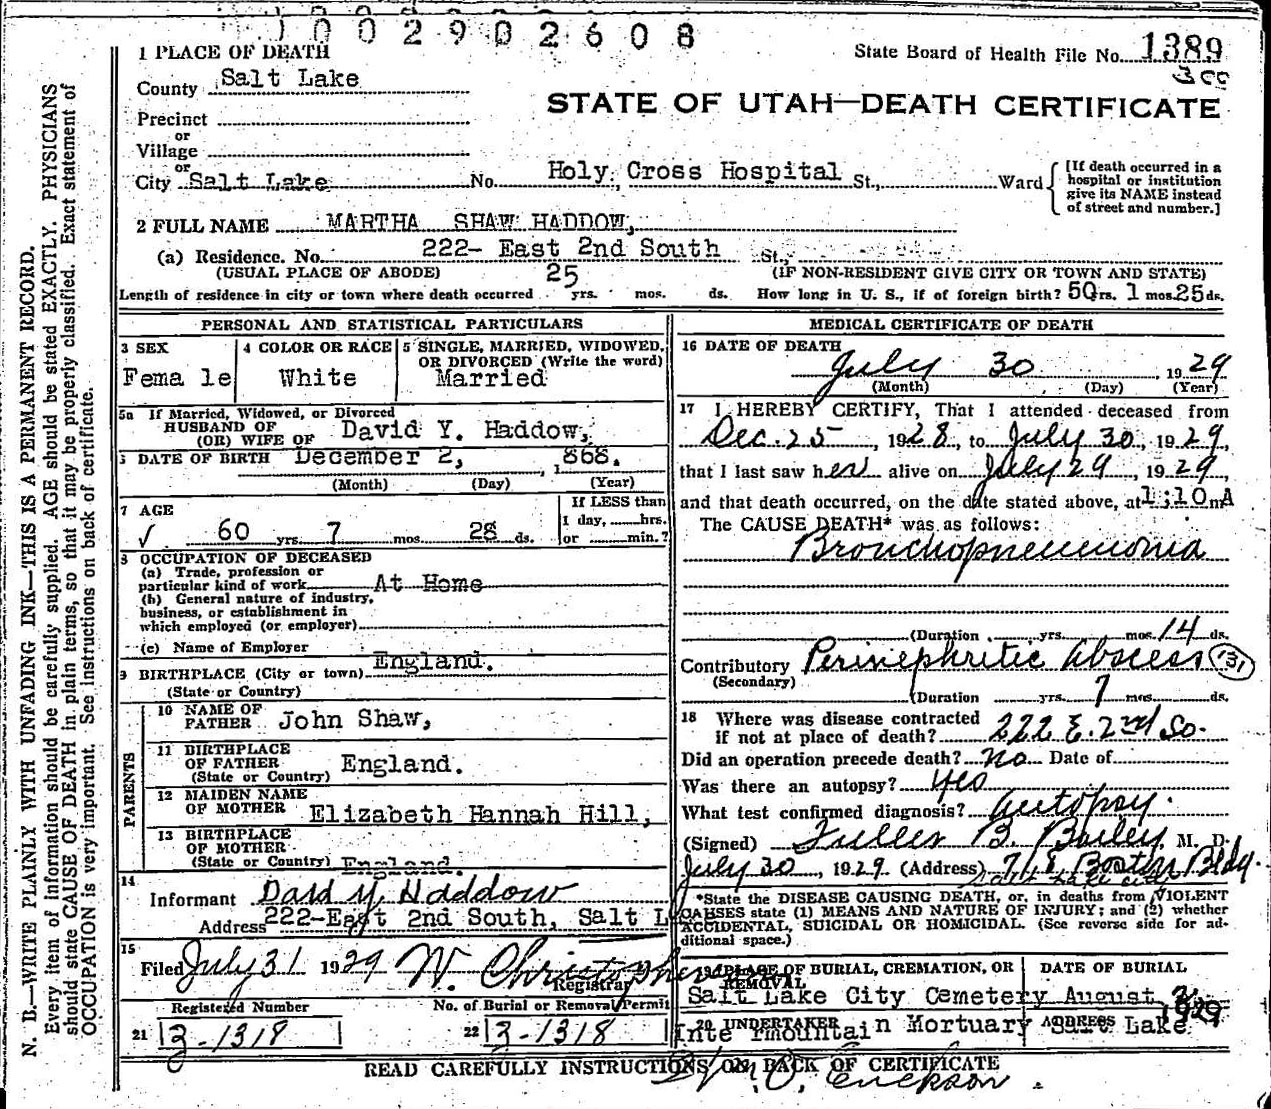 1002902608
1 PLACE OF DEATH
State Board of Health File No. 1389
County Salt Lake
3cc
STATE OF UTAH—DEATH CERTIFICATE
Precinct
or
Village
or
City Salt Lake No. Holy Cross Hospital St., Ward
[If death occurred in a
hospital or institution
give its NAME instead
of street and number.]
2 FULL NAME MARTHA SHAW HADDOW,
(a) Residence. No. 222- East 2nd South St.,
(USUAL PLACE OF ABODE) (IF NON-RESIDENT GIVE CITY OR TOWN AND STATE)
Length of residence in city or town where death occurred 25 yrs. mos. ds. How long in U. S., if of foreign birth? 50 yrs. 1 mos. 25 ds.
PERSONAL AND STATISTICAL PARTICULARS
3 SEX
Fema le
4 COLOR OR RACE
White
5 SINGLE, MARRIED, WIDOWED,
OR DIVORCED (Write the word)
Married
5a If Married, Widowed, or Divorced
HUSBAND OF
(OR) WIFE OF David Y. Haddow,
DATE OF BIRTH December 2, , 1868.
(Month) (Day) (Year)
7 AGE
✓ 60 yrs. 7 mos. 28 ds.
If LESS than
1 day, hrs.
or min.?
8 OCCUPATION OF DECEASED
(a) Trade, profession or
particular kind of work At Home
(b) General nature of industry,
business, or establishment in
which employed (or employer)
(c) Name of Employer
9 BIRTHPLACE (City or town) England.
(State or Country)
PARENTS
10 NAME OF
FATHER John Shaw,
11 BIRTHPLACE
OF FATHER
(State or Country) England.
12 MAIDEN NAME
OF MOTHER Elizabeth Hannah Hill,
13 BIRTHPLACE
OF MOTHER
(State or Country) England.
14
Informant David Y. Haddow
Address 222-East 2nd South, Salt L
15
Filed July 31 1929 W. Christophersen
Registrar
Registered Number
21 3-1318
No. of Burial or Removal Permit
22 3-1318
MEDICAL CERTIFICATE OF DEATH
16 DATE OF DEATH
July 30 1929
(Month) (Day) (Year)
17 I HEREBY CERTIFY, That I attended deceased from
Dec. 25, 1928, to July 30, 1929,
that I last saw her alive on July 29, 1929,
and that death occurred, on the date stated above, at 1:10 mA
The CAUSE DEATH* was as follows:
Bronchopneumonia
(Duration yrs. mos. 14 ds.
Contributory Perinephritic abscess (131)
(Secondary)
(Duration yrs. 7 mos. ds.
18 Where was disease contracted
if not at place of death? 222 E. 2nd So.
Did an operation precede death? No Date of
Was there an autopsy? yes
What test confirmed diagnosis? Autopsy.
(Signed) Fuller B. Bailey, M. D.
July 30, 1929 (Address) 718 Boston Bldg.
Salt Lake City
*State the DISEASE CAUSING DEATH, or, in deaths from VIOLENT
CAUSES state (1) MEANS AND NATURE OF INJURY; and (2) whether
ACCIDENTAL, SUICIDAL OR HOMICIDAL. (See reverse side for ad-
ditional space.)
19 PLACE OF BURIAL, CREMATION, OR
REMOVAL
Salt Lake City Cemetery
DATE OF BURIAL
August 1929
20 UNDERTAKER
Inte rmountai n Mortuary
ADDRESS
Salt Lake
READ CAREFULLY INSTRUCTIONS ON BACK OF CERTIFICATE
N. B.—WRITE PLAINLY WITH UNFADING INK—THIS IS A PERMANENT RECORD.
Every item of information should be carefully supplied. AGE should be stated EXACTLY. PHYSICIANS
should state CAUSE OF DEATH in plain terms, so that it may be properly classified. Exact statement of
OCCUPATION is very important. See instructions on back of certificate.